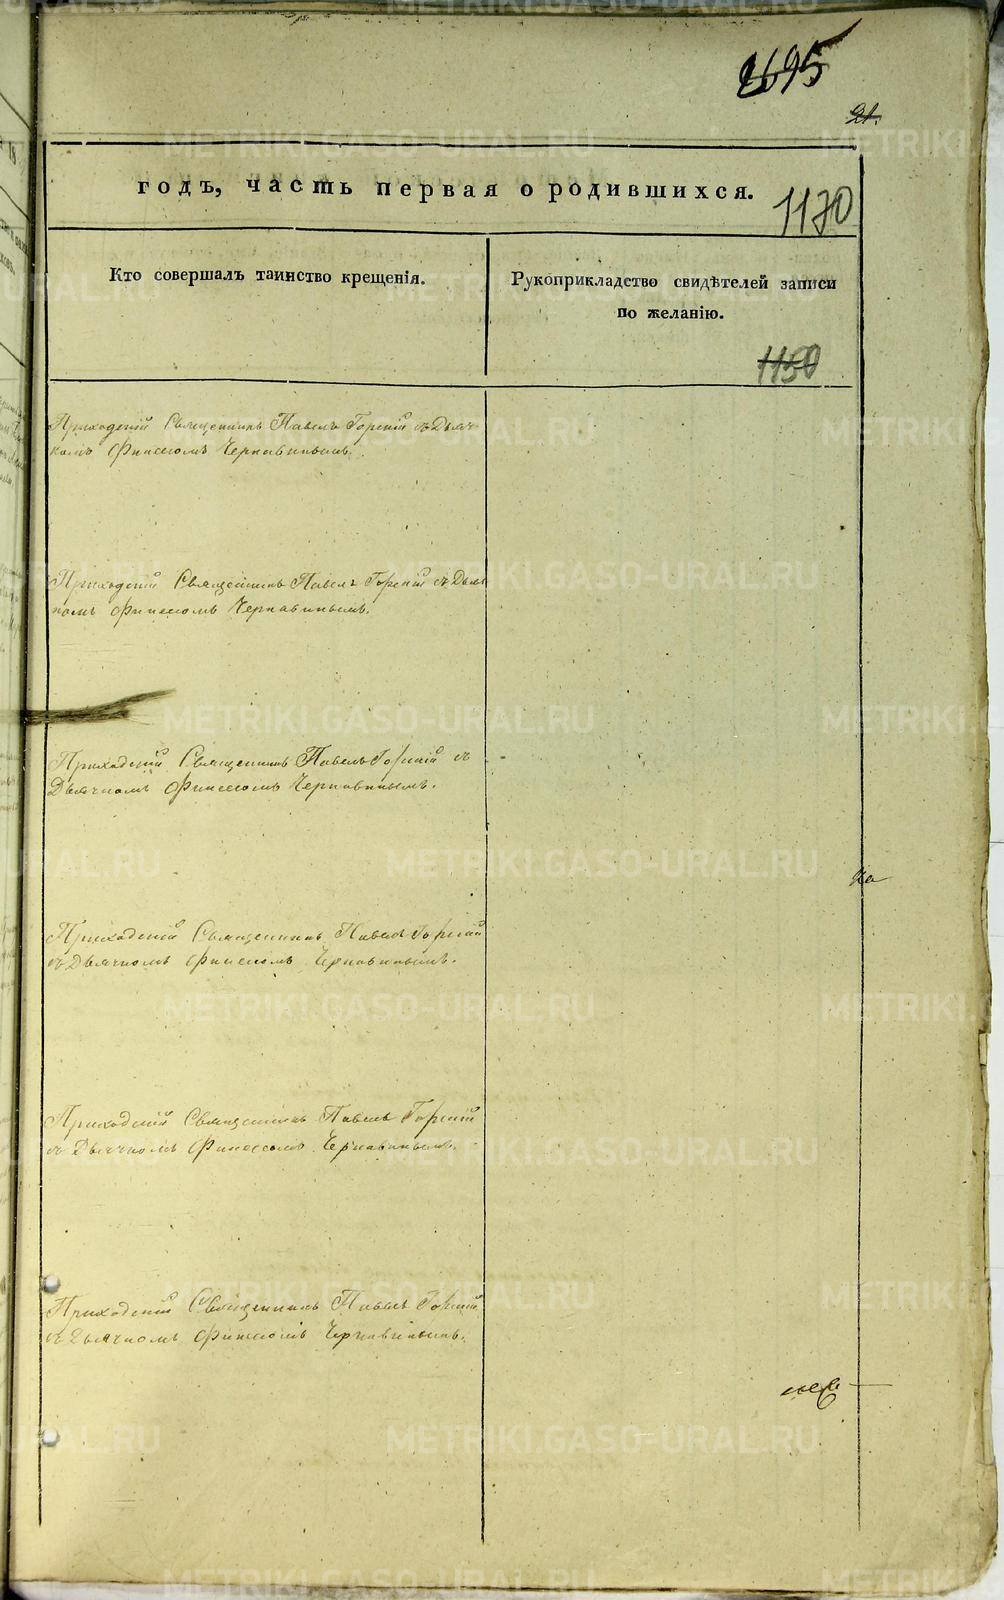 1695
21.
годъ, часть первая о родившихся.
1170
Кто совершалъ таинство крещенія.
Рукоприкладство свидѣтелей записи
по желанію.
1150
Приходскій Священникъ Павелъ Горскій съ Дьяч-
комъ Финеесомъ Чернавинымъ.
Приходскій Священникъ Павелъ Горскій съ Дьяч
комъ Финеесомъ Чернавинымъ.
Приходскій Священникъ Павелъ Горскій съ
Дьячкомъ Финеесомъ Чернавинымъ.
Приходскій Священникъ Павелъ Горскій
съ Дьячкомъ Финеесомъ Чернавинымъ.
Приходскій Священникъ Павелъ Горскій
съ Дьячкомъ Финеесомъ Чернавинымъ.
Приходскій Священникъ Павелъ Горскій
съ Дьячкомъ Финеесомъ Чернавинымъ.
METRIKI.GASO-URAL.RU